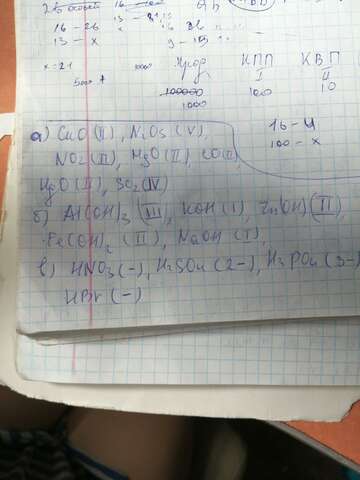 16 - 26
13 - x
x = 21
5000
1000
Прод
КПП
КВП
I
II
100000
1000
100
10
16 - 4
100 - x
а) CuO (II), N2O5 (V),
NO2 (II), MgO (II), CO (II),
HgO (II), SO2 (IV)
б) Al(OH)3 (III), KOH (I), Zn(OH) (II),
Fe(OH)2 (II), NaOH (I),
в) HNO3 (-), H2SO4 (2-), H3PO4 (3-)
HBr (-)